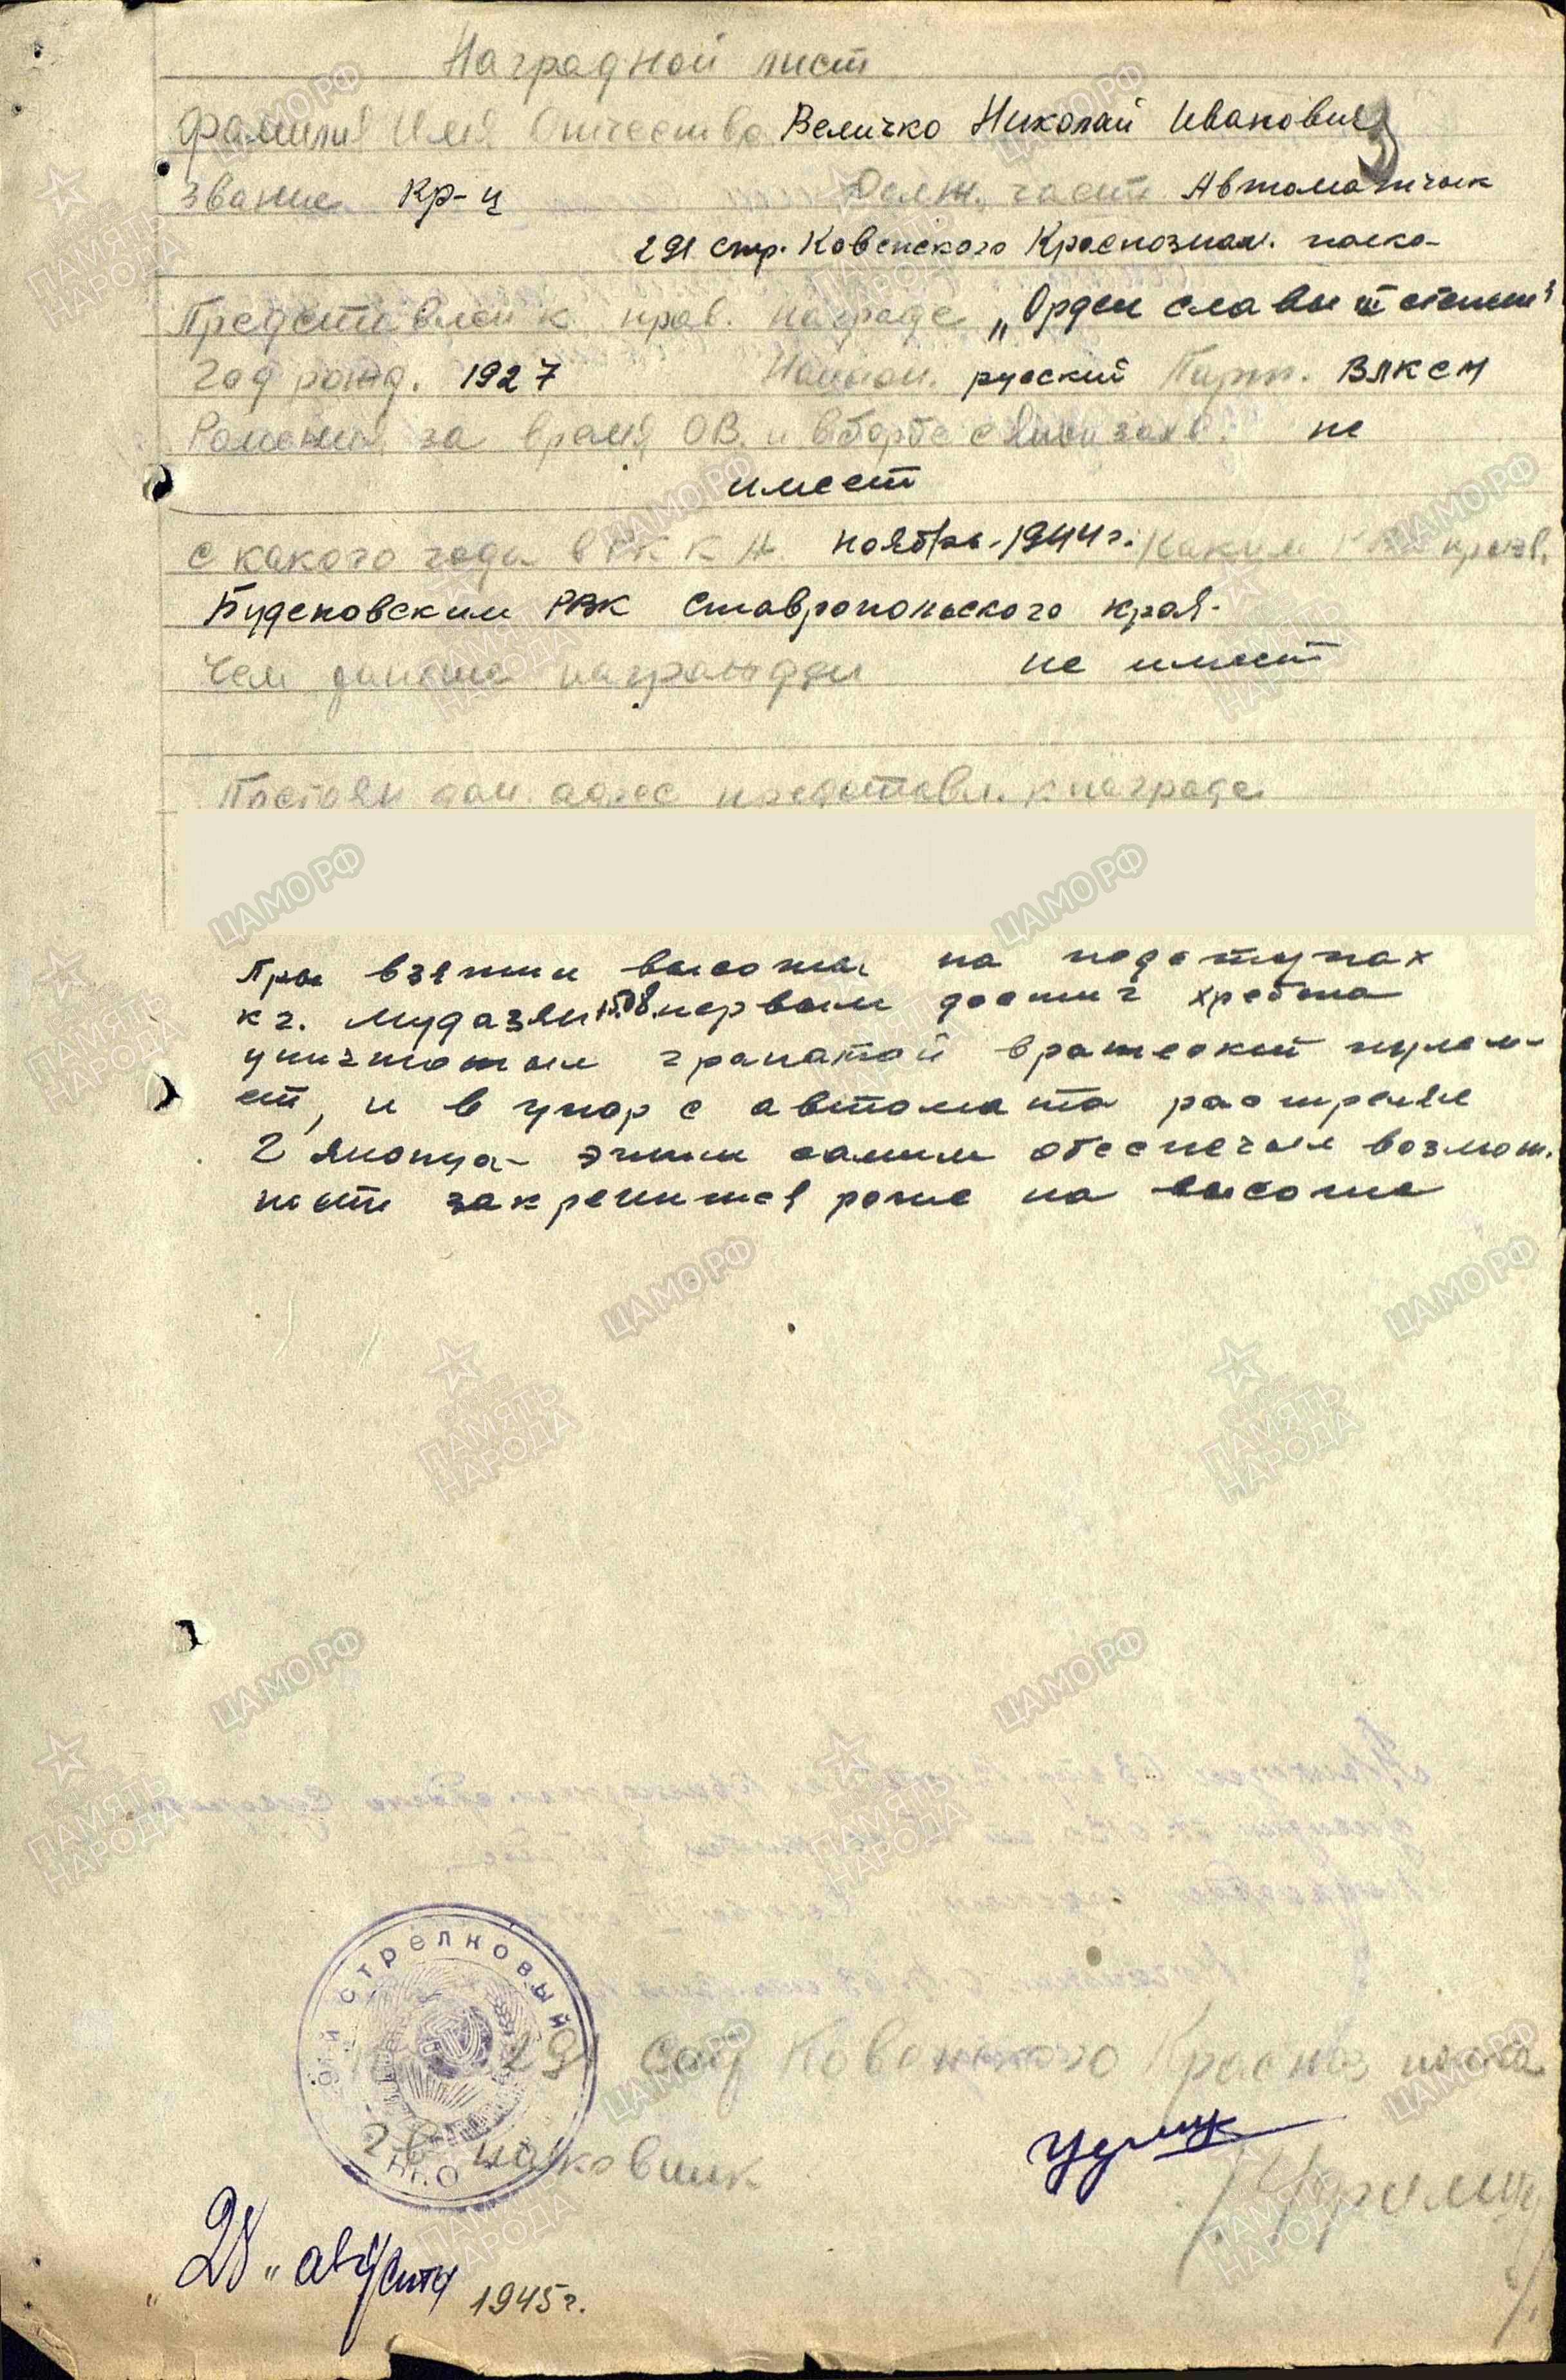 Наградной лист
3
Фамилия Имя Отчество Величко Николай Иванович
Звание Кр-ц Должн. часть Автоматчик
291 стр. Ковенского Краснознам. полка
Представлен к прав. награде „Орден славы III степени"
Год рожд. 1927 Национ. русский Парт. ВЛКСМ
Ранения за время ОВ. и в борьбе с не
имеет
с какого года в РККА ноябрь-1944г. Каким РВК призв.
Буденовским РВК Ставропольского края-
Чем раньше награжден не имеет
Постоян дом. адрес представл. к награде
При взятии высоты на подступах
к г. Мудазян 15.08. первым достиг хребта
уничтожил гранатой вражеский пулем-
ет, и в упор с автомата растрелял
2 японца- этим самим обеспечил возмож.
ность закрепится роте на высоте
й стрелковый
НКО
291 Ковенского Красноз полка
полковник
„28„ августа 1945г.
ЦАМО РФ
ПАМЯТЬ НАРОДА